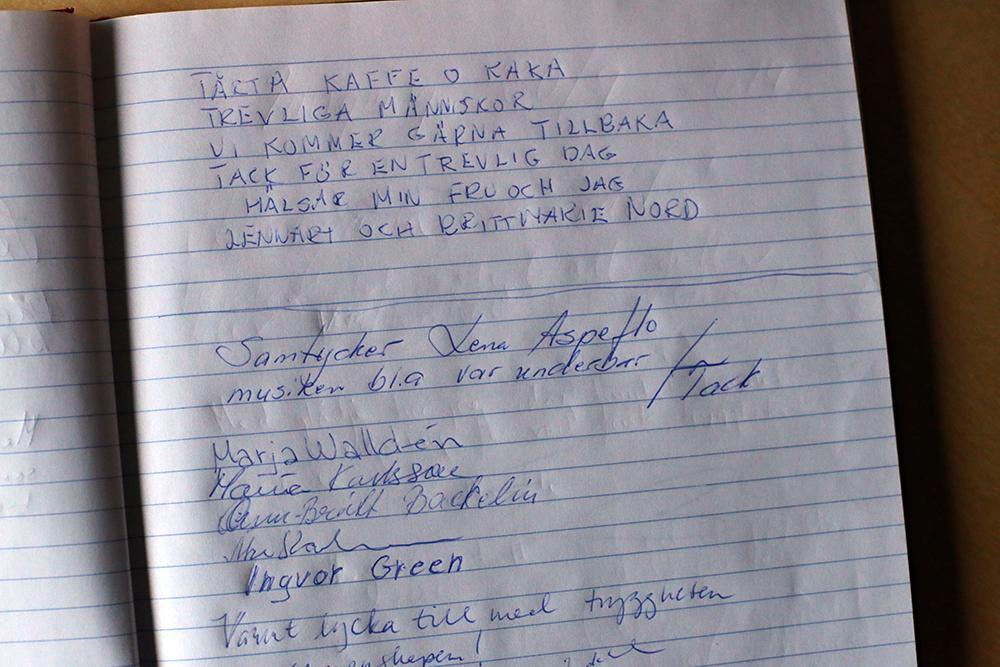 TÅRTA KAFFE O KAKA
TREVLIGA MÄNNSKOR
VI KOMMER GÄRNA TILLBAKA
TACK FÖR EN TREVLIG DAG
HÄLSAR MIN FRU OCH JAG
LENNART OCH BRITTMARIE NORD
Samtycker Lena Aspeflo
musiken bl.a var underbar / Tack
Marja Walldén
Maria Karlsson
Ann-Britt Backelin
Ingvor Green
Varmt lycka till med tryggheten